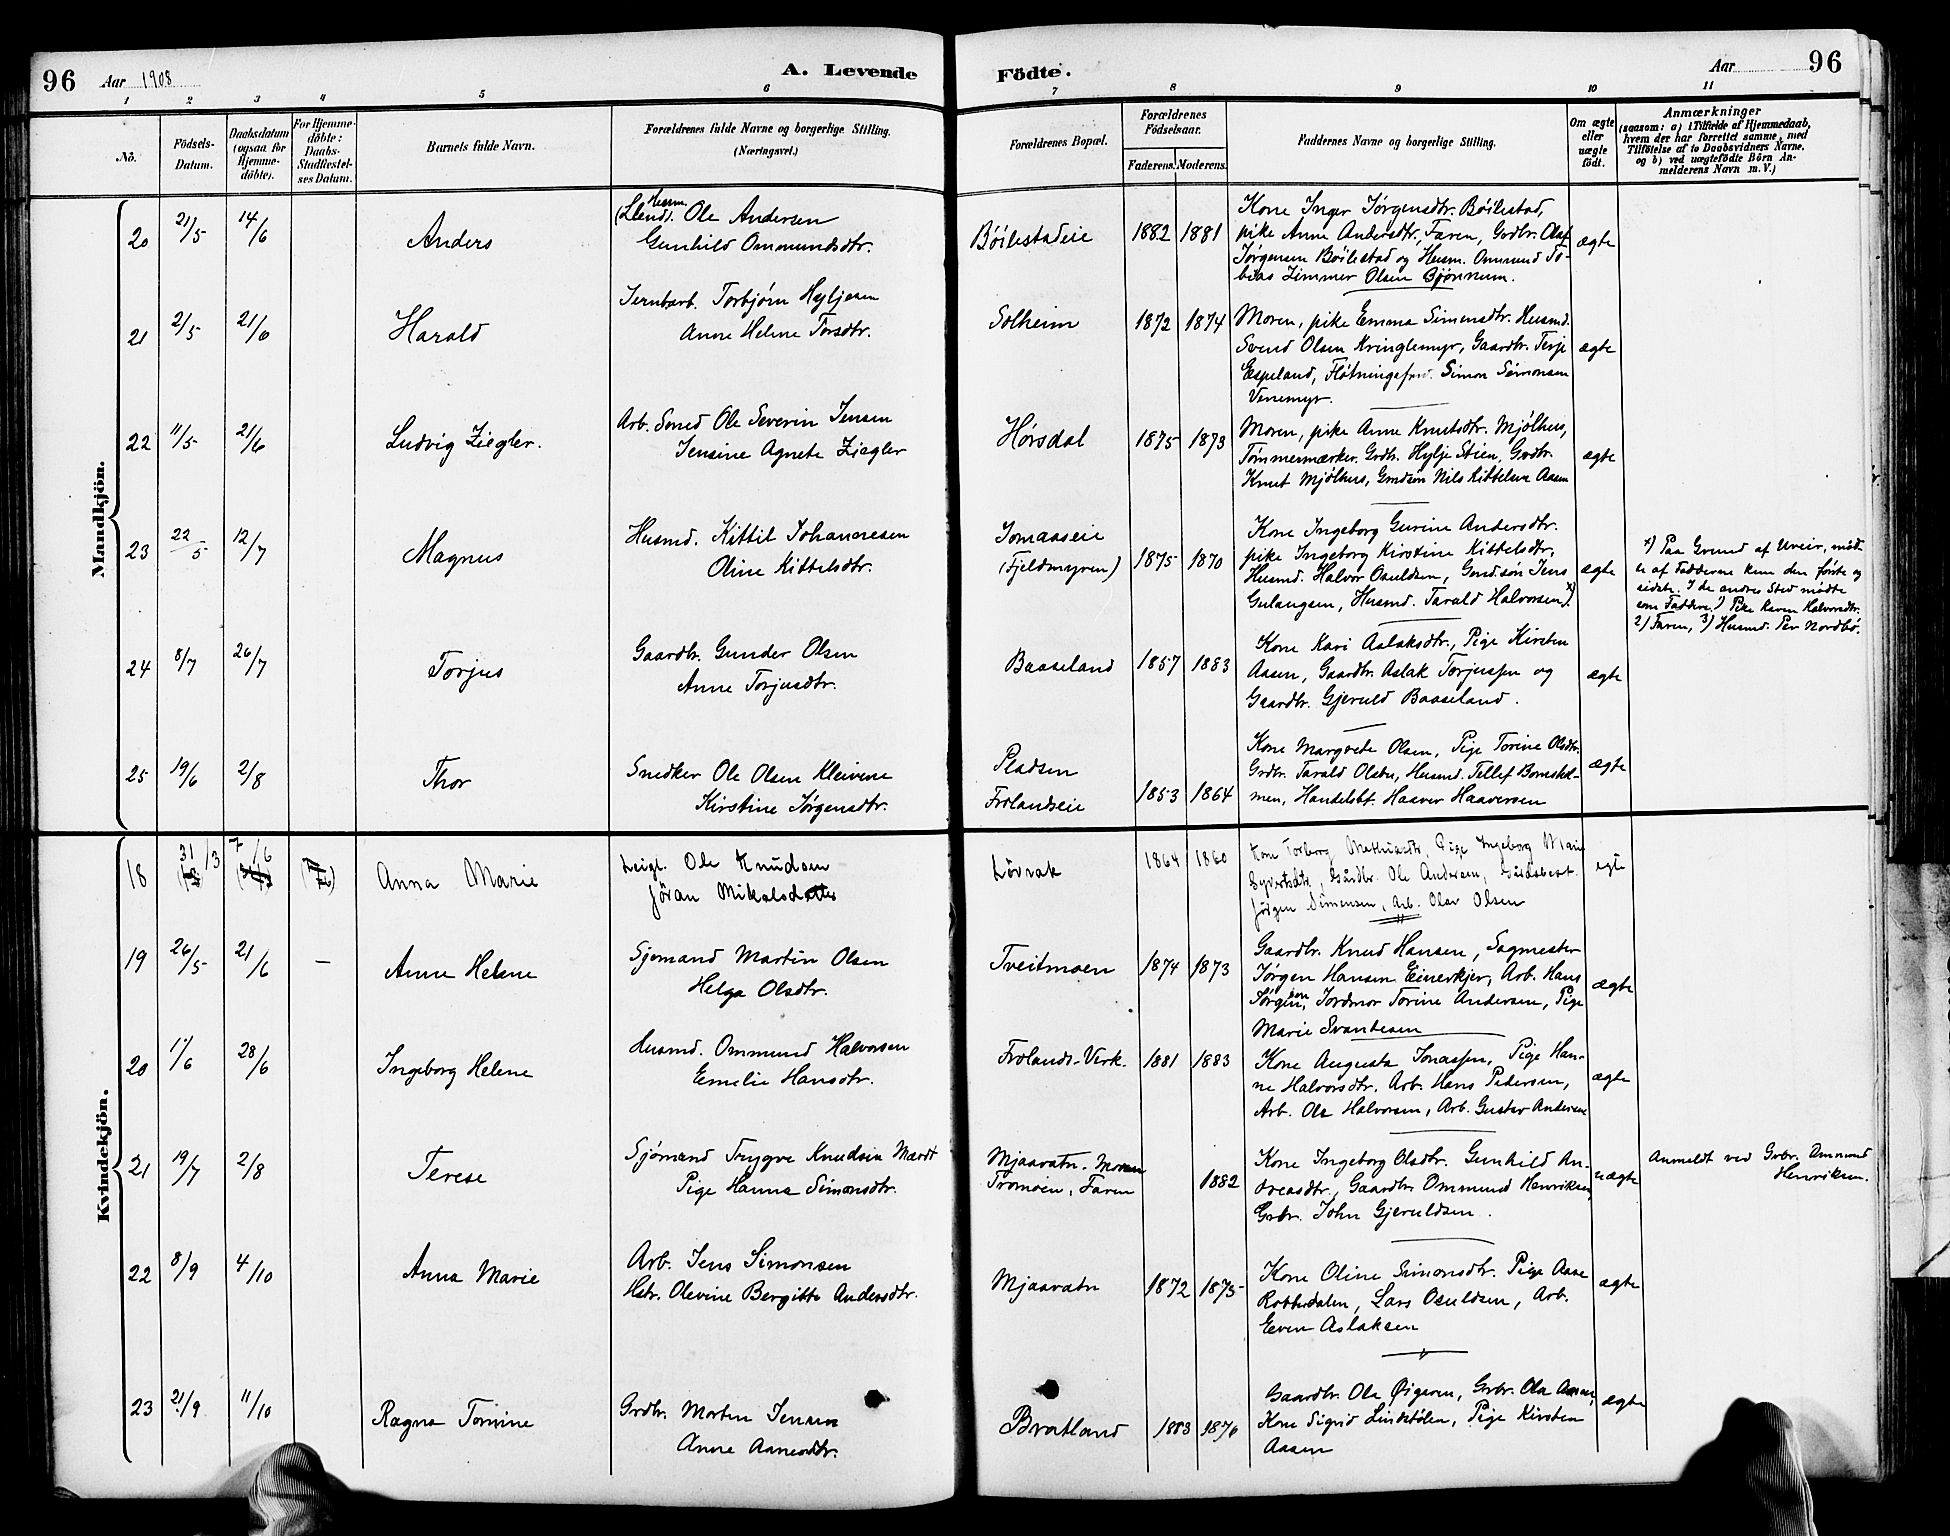 96 Aar 1908 A. Levende
Födte. Aar 96
1 2 3 4 5 6 7 8 9 10 11
No.
Födsels-
Datum.
Daabsdatum
(ogsaa for
Hjemme-
döbte).
For Hjemme-
döbte:
Daabs-
Stadfæstel-
ses Datum.
Barnets fulde Navn.
Forældrenes fulde Navne og borgerlige Stilling.
(Næringsvei.)
Forældrenes Bopæl.
Forældrenes
Födselsaar.
Faderens. Moderens.
Faddernes Navne og borgerlige Stilling.
Om ægte
eller
uægte
födt.
Anmærkninger
(saasom: a) i Tilfælde af Hjemmedaab,
hvem der har forrettet samme, med
Tilföielse af to Daabsvidners Navne.
og b) ved uægtefödte Börn An-
melderens Navn m. V.)
Mandkjön.
20 21/5 14/6 Anders
Husm.
(Lend). Ole Andersen
Gunhild Ommundsdtr.
Bøilestadeie 1882 1881
Kone Inger Jørgensdtr. Bøilestad,
pike Anne Andersdtr, Faren, Grdbr. Olaf
Jørgensen Bøilestad og Husm. Ommund To-
bias Zimmer Olsen Bjønnum.
ægte
21 2/5 21/6 Harald
Jernbarb. Torbjørn Hyljesen
Anne Helene Torsdtr.
Solheim 1872 1874
Moren, pike Emma Simensdtr. Husmd.
Svend Olsen Kringlemyr, Gaardbr. Terje
Espeland, Fløtningsfmd. Simon Simonsen
Venemyr.
ægte
22 11/5 21/6 Ludvig Ziegler.
Arb. Smed Ole Severin Jensen
Jensine Agnete Ziegler
Hørsdal 1875 1873
Moren, pike Anne Knutsdtr. Mjølhus,
Tømmermærker. Grdbr. Hylje Stien, Grdbr.
Knut Mjølhus, Grndsøn Nils Kittelsen Aasen
ægte
23 22/5 12/7 Magnus
Husmd. Kittil Johannesen
Oline Kittelsdtr.
Jomaaseie
(Fjeldmyren) 1875 1870
Kone Ingeborg Gurine Andersdtr.
pike Ingeborg Kirstine Kittelsdtr,
Husmd. Halvor Osuldsen, Grnd.søn Jens
Gulangsen, Husmd. Tarald Halvorsen x)
ægte
x) Paa Grund af Uveir, mødt
e af Fadderne kun den første og
sidste. I de andres Sted mødte
som Faddere 1) Pike Karen Halvorsdtr.
2) Faren, 3) Husmd. Per Nordbø.
24 8/7 26/7 Torjus
Gaardbr. Gunder Olsen
Anne Torjusdtr.
Baaseland 1857 1883
Kone Kari Aslaksdtr., Pige Kirsten
Aasen, Gaardbr. Aslak Torjussen og
Gaardbr. Gjeruld Baaseland.
ægte
25 19/6 2/8 Thor
Snedker Ole Olsen Kleivene
Kirstine Jørgensdtr.
Pladsen
Frolandseie 1853 1864
Kone Margrete Olsen, Pige Torine Olsdtr.
Grdbr. Tarald Olsbu, Husmd. Tellef Bomshol-
men, Handelsbt. Haaver Haaversen
ægte
Kvindekjön.
18 31/3 7/6 Anna Marie
Leigl. Ole Knudsen
Jöran Mikalsdatter
Lövrak 1864 1860
Kone Torborg Mathiasdtr, Pige Ingeborg Marie
Syvertsdtr, Gårdbr. Ole Andersen, Gårdsbest.
Jörgen Simensen, Arb. Olav Olsen
egte
19 26/5 21/6 — Anne Helene
Sjømand Martin Olsen
Helga Olsdtr.
Tveitmoen 1874 1873
Gaardbr. Knud Hansen, Sagmester
Jørgen Hansen Einerkjer, Arb. Hans
Jørgensen, Jordmor Torine Andersen, Pige
Marie Svantesen
ægte
20 1/6 28/6 Ingeborg Helene
Husmd. Ommund Halvorsen
Emelie Hansdtr.
Frolands-Verk. 1881 1883
Kone Augusta Jonassen, Pige Han-
ne Halvorsdtr. Arb. Hans Pedersen,
Arb. Ole Halvorsen, Arb. Gustav Andersen
ægte
21 19/7 2/8 Terese
Sjömand Trygve Knudsen Mærdt
Pige Hanna Simonsdtr.
Mjaavatn. Moren
Tromøen, Faren 1882
Kone Ingeborg Olsdtr. Gunhild An-
dreasdtr, Gaardbr. Ommund Henriksen,
Grbr. John Gjeruldsen.
uægte
Anmeldt ved Grbr. Ommund
Henriksen.
22 8/9 4/10 Anna Marie
Arb. Jens Simonsen
Hstr. Olevine Bergitte Andersdtr.
Mjaavatn 1872 1875
Kone Oline Simonsdtr. Pige Aase
Robberdalen, Lars Osuldsen, Arb.
Even Aslaksen
ægte
23 21/9 11/10 Ragna Tomine
Grdbr. Morten Jensen
Anne Aanensdtr.
Bratland 1883 1876
Gaardbr. Ole Øigaren, Grbr. Ola Aasen,
Kone Sigrid Lindtølen, Pige Kirsten
Aasen
ægte